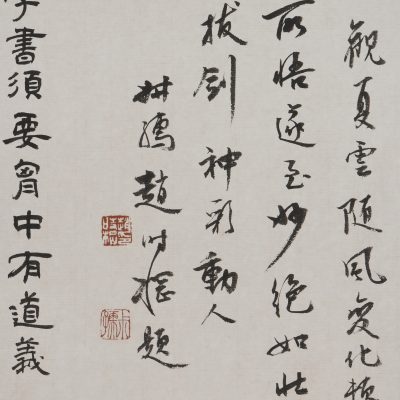 觀夏雲隨風變化頓
所悟遂至妙絕如壯
拔劍神彩動人
趙時棡題
學書須要胷中有道義